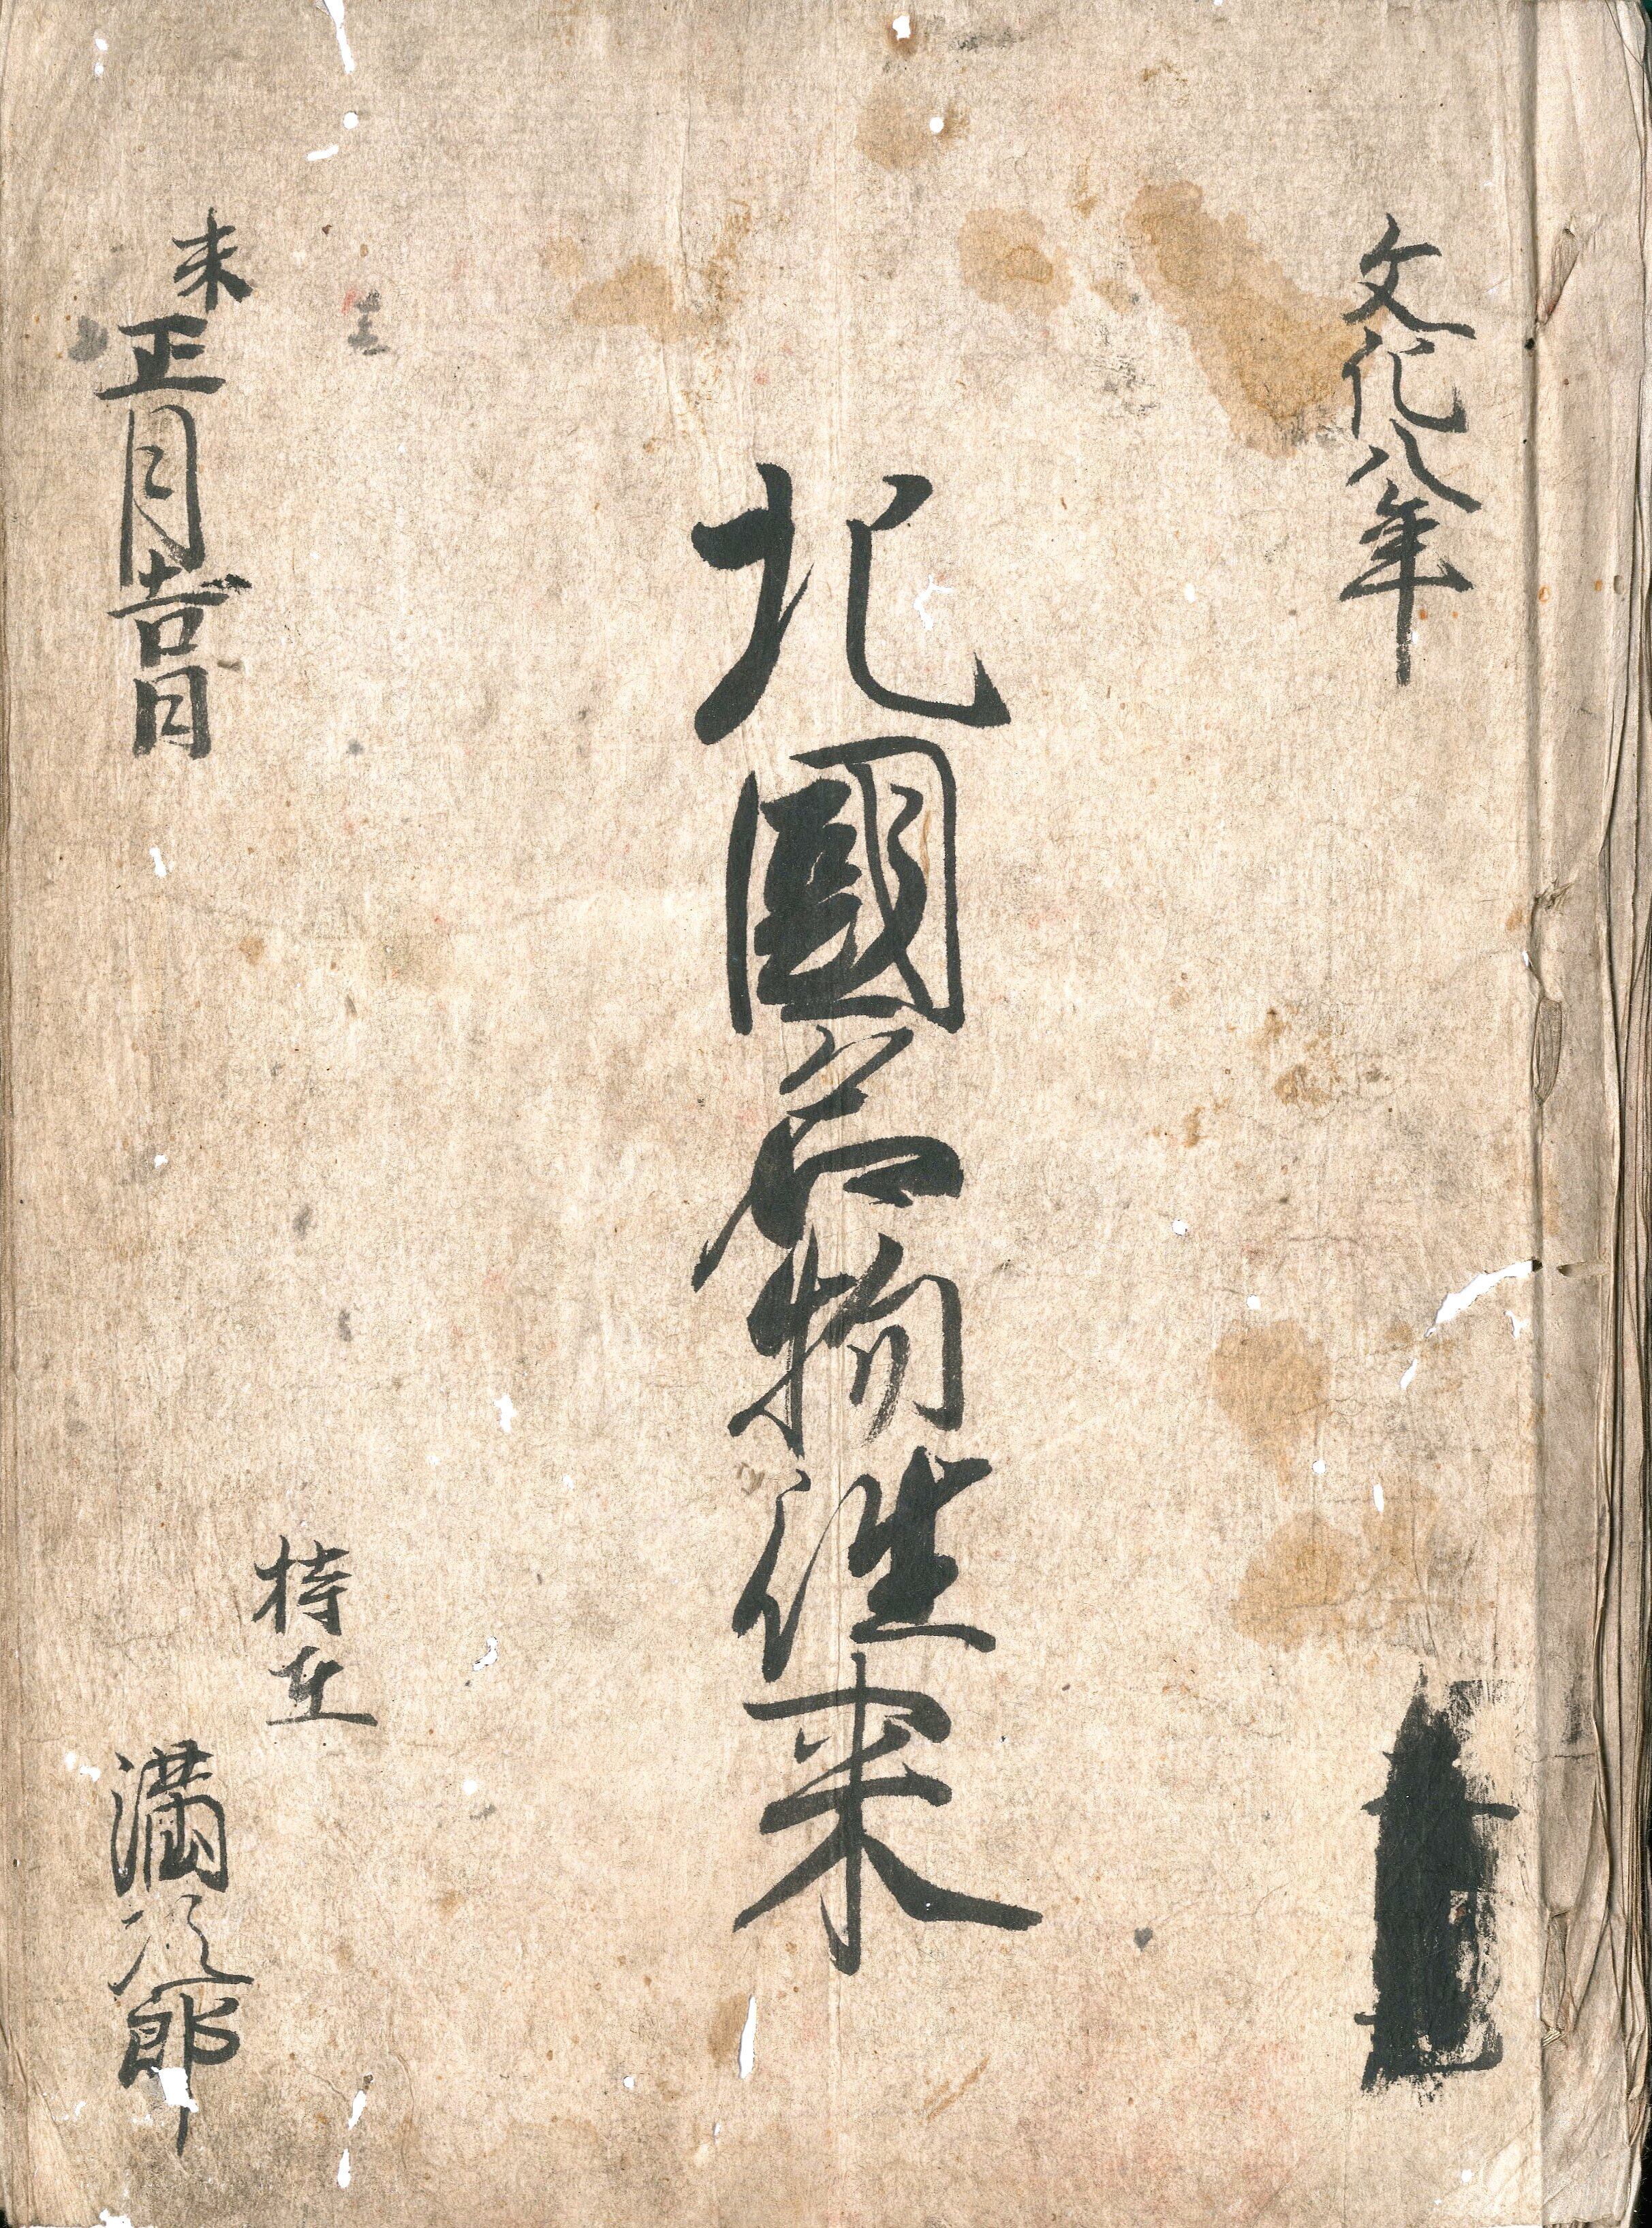 文化八年
北國名物往来
未正月吉日
持主
満次郎